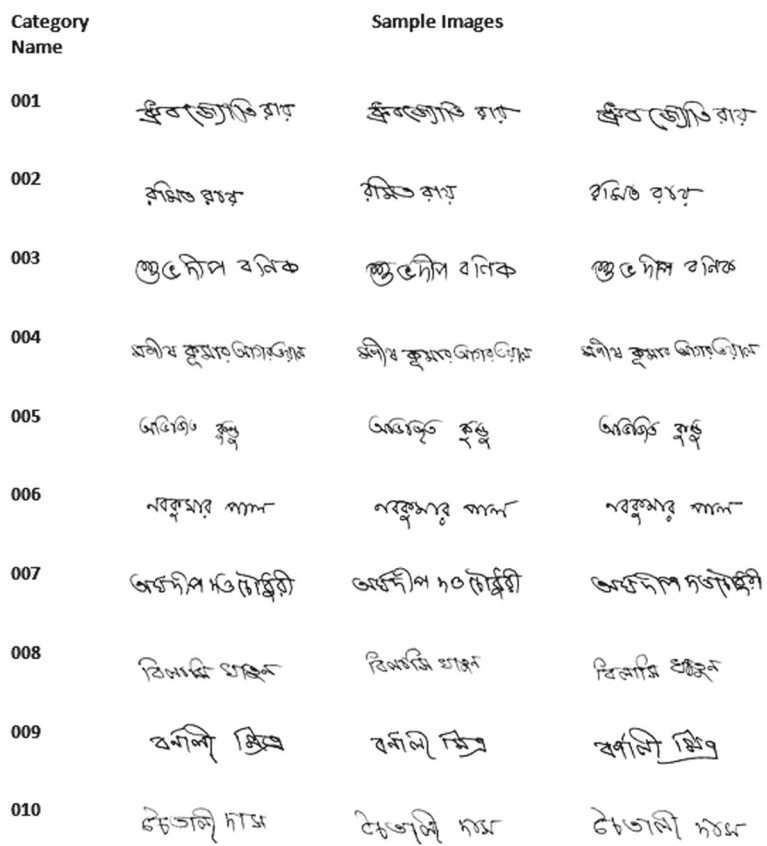 Category Name Sample Images
001 ধ্রুবজ্যোতি রায় ধ্রুবজ্যোতি রায় ধ্রুবজ্যোতি রায়
002 রমিত রায় রমিত রায় রমিত রায়
003 শুভদীপ বনিক শুভদীপ বনিক শুভদীপ বনিক
004 মনীষ কুমার আগরওয়াল মনীষ কুমার আগরওয়াল মনীষ কুমার আগরওয়াল
005 অভিজিত কুন্ডু অভিজিত কুন্ডু অভিজিত কুন্ডু
006 নবকুমার পাল নবকুমার পাল নবকুমার পাল
007 অর্ঘদীপ দত্ত চৌধুরী অর্ঘদীপ দত্ত চৌধুরী অর্ঘদীপ দত্ত চৌধুরী
008 বিলাসি বিলাসি বিলাসি
009 বর্নালী মিত্র বর্নালী মিত্র বর্নালী মিত্র
010 চৈতালী দাস চৈতালী দাস চৈতালী দাস